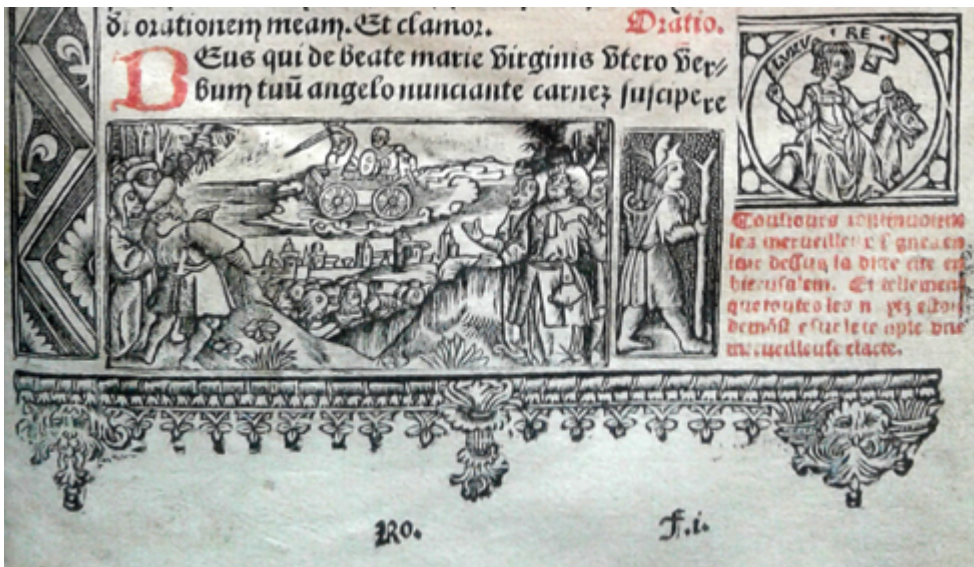 di orationem meam. Et clamor. Oratio.
Deus qui de beate marie virginis vtero ver⸗
bum tuū angelo nunciante carnez suscipere
LVXV RE
Tousiours
les merueilleux signes en
lair dessus la dicte cite en
hierusalem. Et tellement
que toutes les
demōst
merueilleuse clarte.
Ro. F.i.